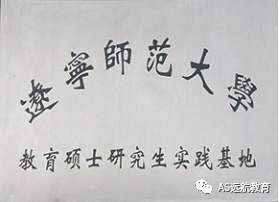 遼寧師范大學
教育硕士研究生实践基地
AS远航教育